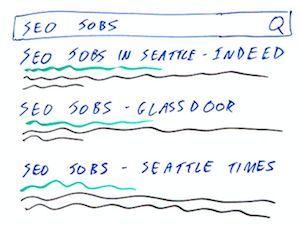 SEO JOBS
SEO JOBS IN SEATTLE - INDEED
SEO JOBS - GLASSDOOR
SEO JOBS - SEATTLE TIMES